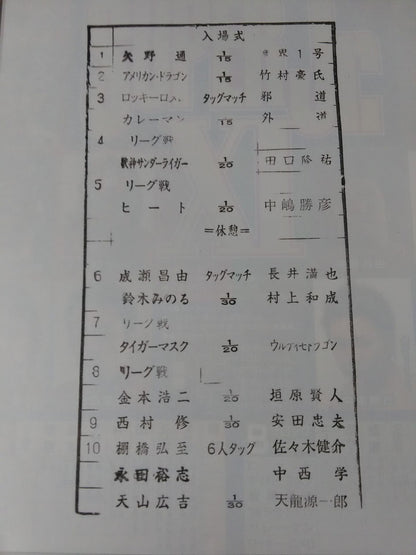 入場式
1 矢野通 1/15 魔界1号
2 アメリカン・ドラゴン 1/15 竹村豪氏
3 ロッキーロメ タッグマッチ 邪道
カレーマン 1/15 外道
4 リーグ戦
獣神サンダーライガー 1/20 田口隆祐
5 リーグ戦
ヒート 1/20 中嶋勝彦
=休憩=
6 成瀬昌由 タッグマッチ 長井満也
鈴木みのる 1/30 村上和成
7 リーグ戦
タイガーマスク 1/20 ウルティモドラゴン
8 リーグ戦
金本浩二 1/20 垣原賢人
9 西村修 1/30 安田忠夫
10 棚橋弘至 6人タッグ 佐々木健介
永田裕志 中西学
天山広吉 1/30 天龍源一郎